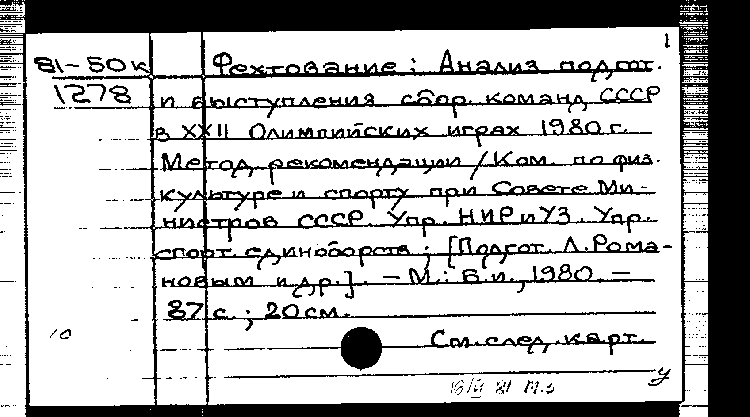 1
81-50к Фехтование: Анализ подгот.
1278 и выступления сбор. команд СССР
в XXII Олимпийских играх 1980 г.
Метод. рекомендации / Ком. по физ.
культуре и спорту при Совете Ми-
нистров СССР. Упр. НИР и УЗ. Упр.
спорт. единоборств; [Подгот. Л. Рома-
новым и др.]. - М.: Б. и., 1980. -
87 с.; 20 см.
См. след. карт.
у